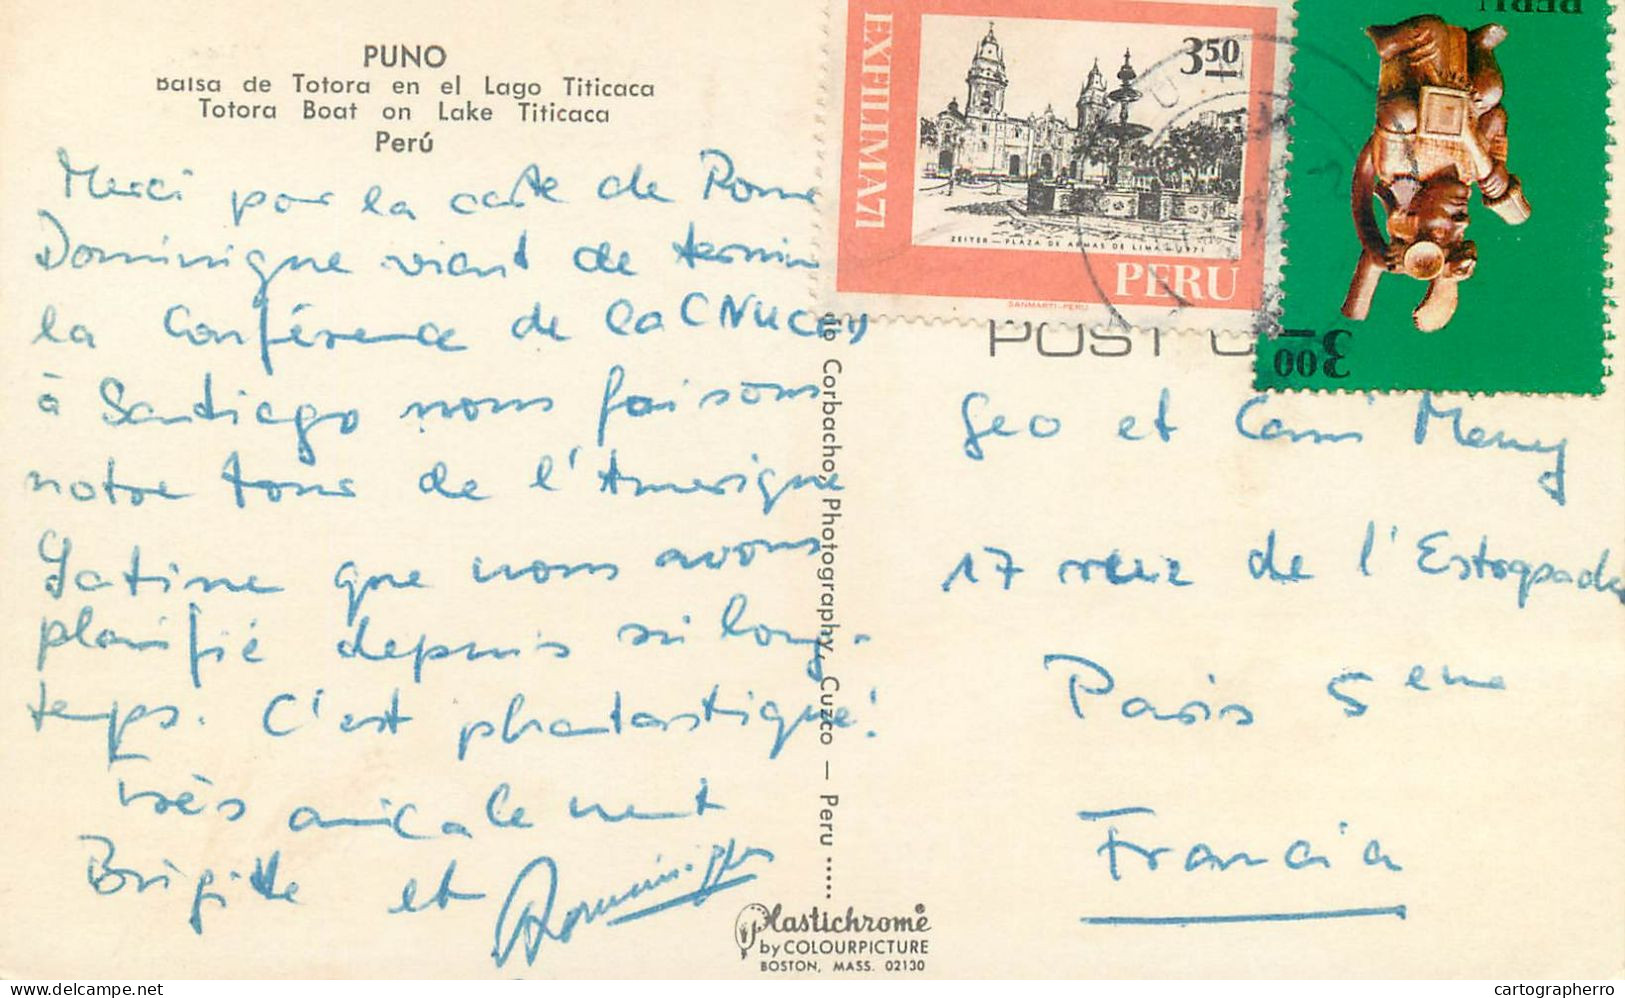 PUNO
Balsa de Totora en el Lago Titicaca
Totora Boat on Lake Titicaca
Perú
Merci pour la carte de Rome
Dominique vient de termin
la Conférence de la CNUCED
à Santiago nous faisons
notre tour de l'Amérique
Latine que nous avons
planifié depuis si long-
temps. C'est phantastique!
Très amicalement
Brigitte et Dominique
dio Corbacho, Photography, Cuzco — Peru .....
Plastichrome®
by COLOURPICTURE
BOSTON, MASS. 02130
EXFILIMA 71
3.50
ZEITER — PLAZA DE ARMAS DE LIMA - 1971
PERU
SANMARTI-PERU
PERU
3.00
POST C
Geo et Cami
17 rue de l'Estrapade
Paris 5eme
Francia
delcampe.net
cartographerro